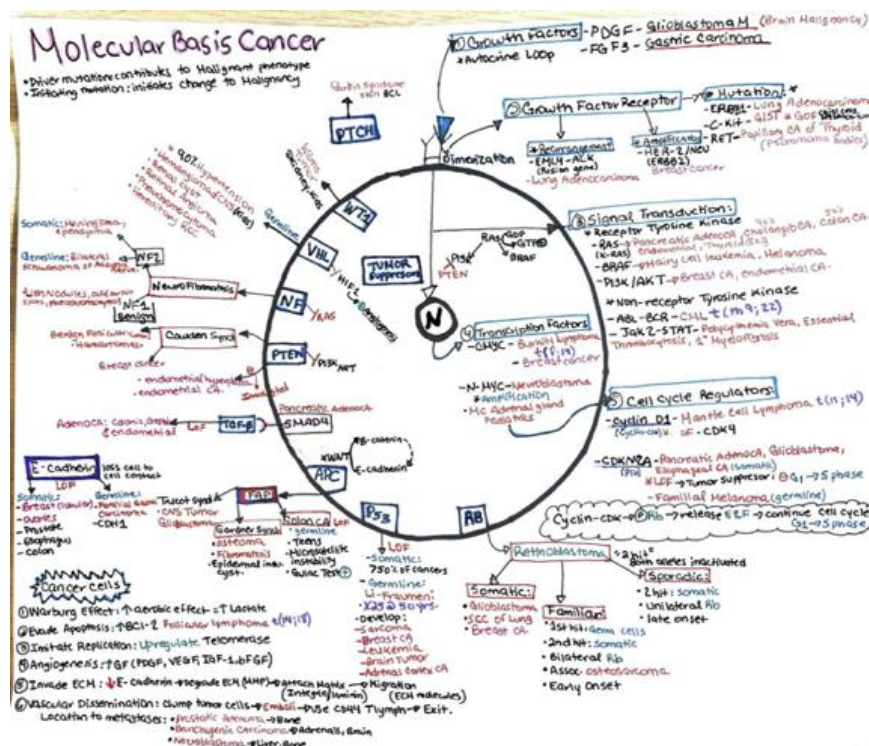 Molecular Basis Cancer
• Driver mutation: contributes to Malignant phenotype
• Initiating mutation: initiates change to Malignancy
① Growth Factors
* Autocrine Loop
- PDGF - Glioblastoma M (Brain Malignancy)
- FGF3 - Gastric Carcinoma
② Growth Factor Receptor
Dimerization
* Rearrangement
- EML4-ALK
(Fusion gene)
- Lung Adenocarcinoma
* Amplification
- HER-2/NEU
(ERBB2)
Breast cancer
* Mutation
- ERBB1 - Lung Adenocarcinoma
- C-Kit - GIST * GOF
- RET - Papillary CA of Thyroid
(Psammoma bodies)
③ Signal Transduction:
* Receptor Tyrosine Kinase
- RAS → Pancreatic AdenoCA, CholangioCA, Colon CA
(K-RAS) endometrial, Thyroid
- BRAF → Hairy Cell leukemia, Melanoma
- PI3K/AKT → Breast CA, endometrial CA
* Non-receptor Tyrosine Kinase
- ABL-BCR - CML t(9;22)
- Jak2-STAT - Polycythemia Vera, Essential
Thrombocytosis, 1° Myelofibrosis
RAS
GDP
GTP
BRAF
PI3K
PTEN
TUMOR
Suppressors
N
④ Transcription Factors
- CMYC - Burkitt Lymphoma
t(8;14)
- Breast cancer
- N-MYC - Neuroblastoma
* Amplification
• MC Adrenal gland
Pediatrics
⑤ Cell Cycle Regulators:
- Cyclin D1 - Mantle Cell Lymphoma t(11;14)
CDK4
- CDKN2A - Pancreatic AdenoCA, Glioblastoma,
(P16) Esophageal CA (somatic)
* LOF → Tumor Suppressor: ⊖ G1 → S phase
- Familial Melanoma (germline)
Cyclin-CDK → Ⓟ Rb → release E2F → continue cell cycle
G1 → S phase
PTCH
BCC
WT1
VHL
Germline:
• 90% Hypertension
• Hemangioma of CNS
• Renal Cyst
• Retinal Angioma
• Pheochromocytoma
Hereditary RCC
HIF1
Angiogenesis
Somatic: Meningioma,
ependymoma
Germline: Bilateral
schwannoma of Acoustic
Nerve
NF2
Neurofibromatosis
NF
RAS
NF1
Benign
Lisch Nodules,
Cowden Synd
PTEN
PI3K AKT
Benign Follicular
Hamartomas
Breast cancer
• endometrial hyperplasia
• endometrial CA
AdenoCA: Colonic,
& endometrial
LOF
TGF-β
Pancreatic AdenoCA
SMAD4
E-Cadherin
LOF
loss cell to
cell contact
Somatic:
• Breast (lobular)
• ovaries
• Prostate
• Esophagus
• Colon
Germline:
• Familial
carcinoma
- CDH1
APC
* WNT
β-catenin
E-cadherin
FAP
Turcot Synd
• CNS Tumor
Glioblastoma
Gardner Synd
• osteoma
• Fibromatosis
• Epidermal
cyst.
Colon CA
• germline
• Teens
• Microsatellite
instability
• Guiac Test ⊕
P53
LOF
• Somatic:
750% of cancers
• Germline:
Li-Fraumeni
• Develop:
- Sarcoma
- Breast CA
- Leukemia
- Brain Tumor
- Adrenal Cortex CA
RB
Retinoblastoma
"2 hit"
Both alleles inactivated
Somatic:
• Glioblastoma
• SCC of Lung
• Breast CA
Familial
• 1st hit: Germ cells
• 2nd hit: Somatic
• Bilateral Rb
• Assoc. osteosarcoma
• Early Onset
Sporadic:
• 2 hit: somatic
• Unilateral Rb
• late onset
Cancer cells
① Warburg Effect: ↑ aerobic effect = ↑ Lactate
② Evade Apoptosis: ↑ BCl-2 Follicular lymphoma t(14;18)
③ Imitate Replication: Upregulate Telomerase
④ Angiogenesis: ↑ GF (PDGF, VEGF, IGF-1, bFGF)
⑤ Invade ECM: ↓ E-Cadherin → Degrade ECM (MMP) → Attach Matrix → Migration
(Integrin/laminin) (ECM molecules)
⑥ Vascular Dissemination: Clump tumor cells → Emboli → use CD44 Tlymph → Exit.
Location to metastases: • Prostatic Adenoma → Bone
• Bronchogenic Carcinoma → Adrenals, Brain
• Neuroblastoma → Liver, Bone